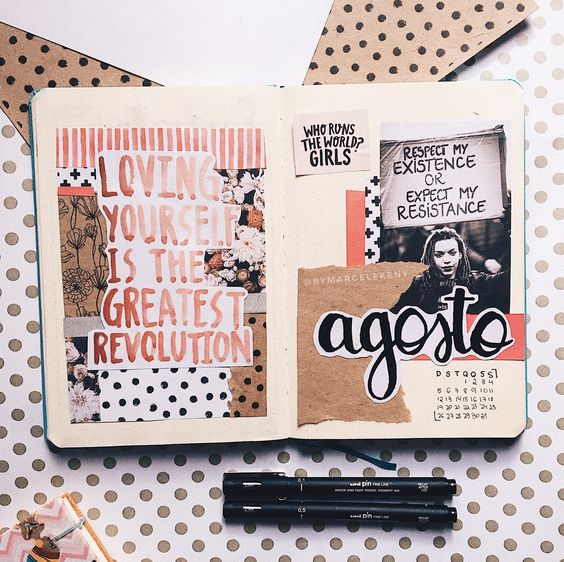 LOVING
YOURSELF
IS THE
GREATEST
REVOLUTION
WHO RUNS
THE WORLD?
GIRLS
RESPECT MY
EXISTENCE
OR
EXPECT MY
RESISTANCE
@BYMARCELEKENY
agosto
D S T Q Q S S
1 2 3 4
5 6 7 8 9 10 11
12 13 14 15 16 17 18
19 20 21 22 23 24 25
26 27 28 29 30 31
0.1 uni pin FINE LINE
WATER AND FADE PROOF, PIGMENT INK
0.5 uni pin FINE LINE